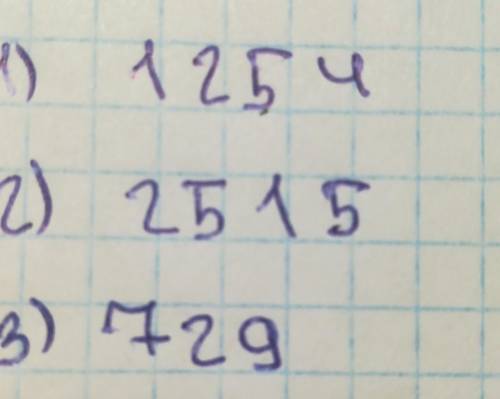 1) 1254
2) 2515
3) 729